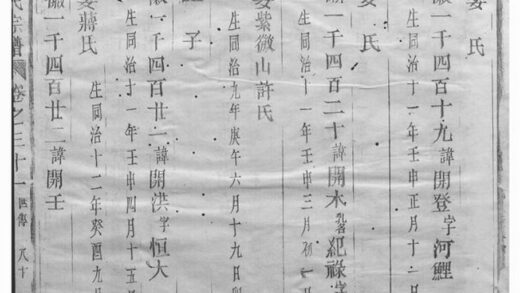 娶　氏
徽一千四百十九諱開登字河鯉
生同治十一年壬申正月十二日
娶　氏
徽一千四百二十諱開木名紀祿字
生同治十一年壬申三月初一日
娶紫微山許氏
生同治九年庚午六月十九日
子
徽一千四百廿一諱開洪字恒大
生同治十一年壬申四月十五
娶蔣氏
生同治十二年癸酉九月
一千四百廿二諱開王
氏宗譜 卷之三十一 世傳 尺十